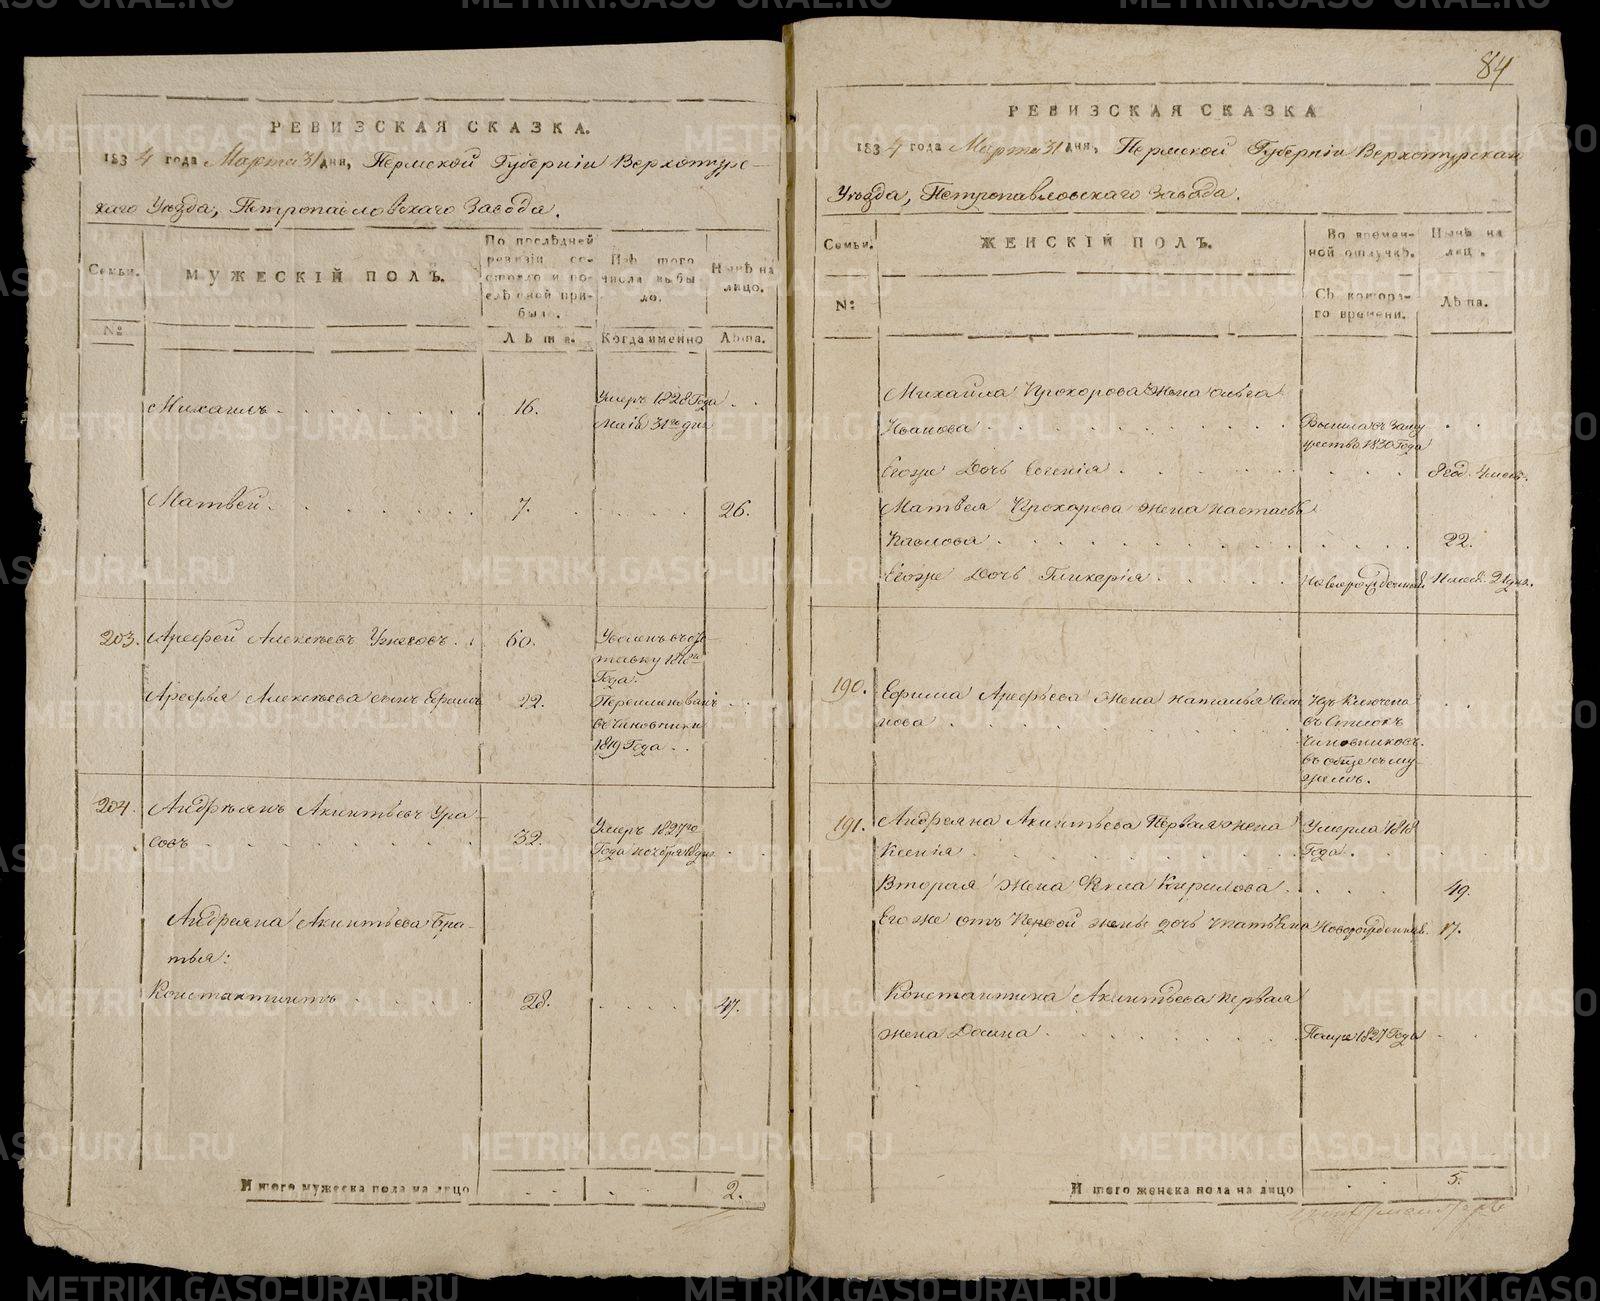 РЕВИЗСКАЯ СКАЗКА.
1834 года Марта 31 дня, Пермской Губерніи Верхотурс-
каго Уѣзда, Петропавловскаго Завода.
Семьи.
№
МУЖЕСКІЙ ПОЛЪ.
По послѣдней ревизіи состояло и послѣ оной прибыло.
Лѣта.
Изъ того числа выбыло.
Когда именно
Нынѣ на лицо.
Лѣта.
Михаилъ
16.
Умеръ 1828 Года
Маія 31го дня
Матвей
7.
26.
203.
Арефей Алексѣевъ
60.
Уволенъ въ от-
ставку
Года.
Арефья Алексѣева сынъ Ефимъ
22.
въ Чиновники
1819 Года
204.
Андреянъ Акинтьевъ Ура-
совъ
32.
Умеръ 1827го
Года Ноября 18 дня
Андреяна Акинтьева Бра-
тья:
Константинъ
28.
47.
И того мужеска пола на лицо
2.
84
РЕВИЗСКАЯ СКАЗКА
1834 года Марта 31 дня, Пермской Губерніи Верхотурскаго
Уѣзда, Петропавловскаго Завода.
Семьи.
№:
ЖЕНСКІЙ ПОЛЪ.
Во временной отлучкѣ.
Съ котораго времени.
Нынѣ на лиц.
Лѣта.
Михайла Прохорова жена Ольга
Иванова
Вышла въ заму
жество 1830 Года
Егоже Дочь Евгенія
8 год. 4 мес.
Матвея Прохорова жена Настасья
Павлова
22.
Егоже Дочь Гликерія
Новорожденная
190.
Ефима Арефьева Жена Наталья Сем
нова
Из Ключена
въ Список
Чиновниковъ
въ обще съ му-
жемъ.
191.
Андреяна Акинтьева Первая жена
Ксенія
Умерла 1818
Года.
Вторая жена Фекла Кирилова
49.
Егоже отъ Первой жены дочь Татьяна
Новорожденная.
17.
Константина Акинтьева первая
жена Домна
Помре 1827 Года
И того женска пола на лицо
5.
METRIKI.GASO-URAL.RU